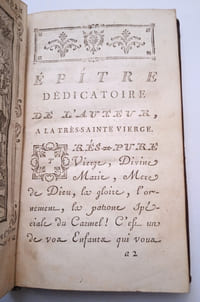 ÉPITRE
DÉDICATOIRE
DE L'AUTEUR,
A LA TRÈS-SAINTE VIERGE.
TRÉS-PURE
Vierge, Divine
Marie, Mere
de Dieu, la gloire, l'or-
nement, la patrone spé-
ciale du Carmel! C'est un
de vos Enfants qui vous
a 2